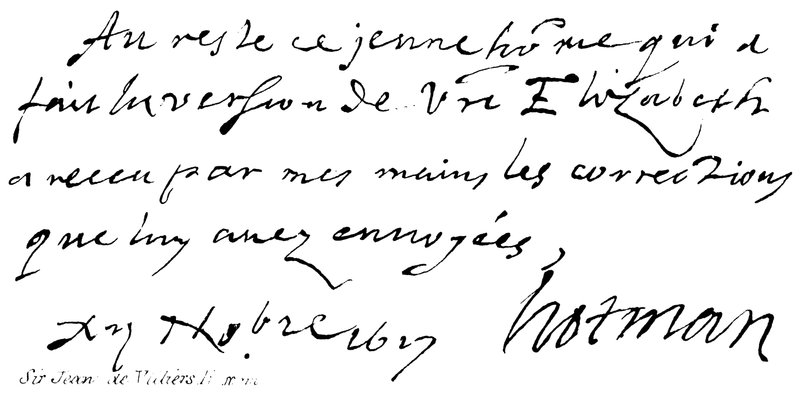 Au reste ce jenne hōme qui a
fait la version de Vre Elizabeth
a receu par mes mains les corrections
que luy auez ennoyées,
xvȷ Nobre 1617 hotman
Sir Jean de Villiers H